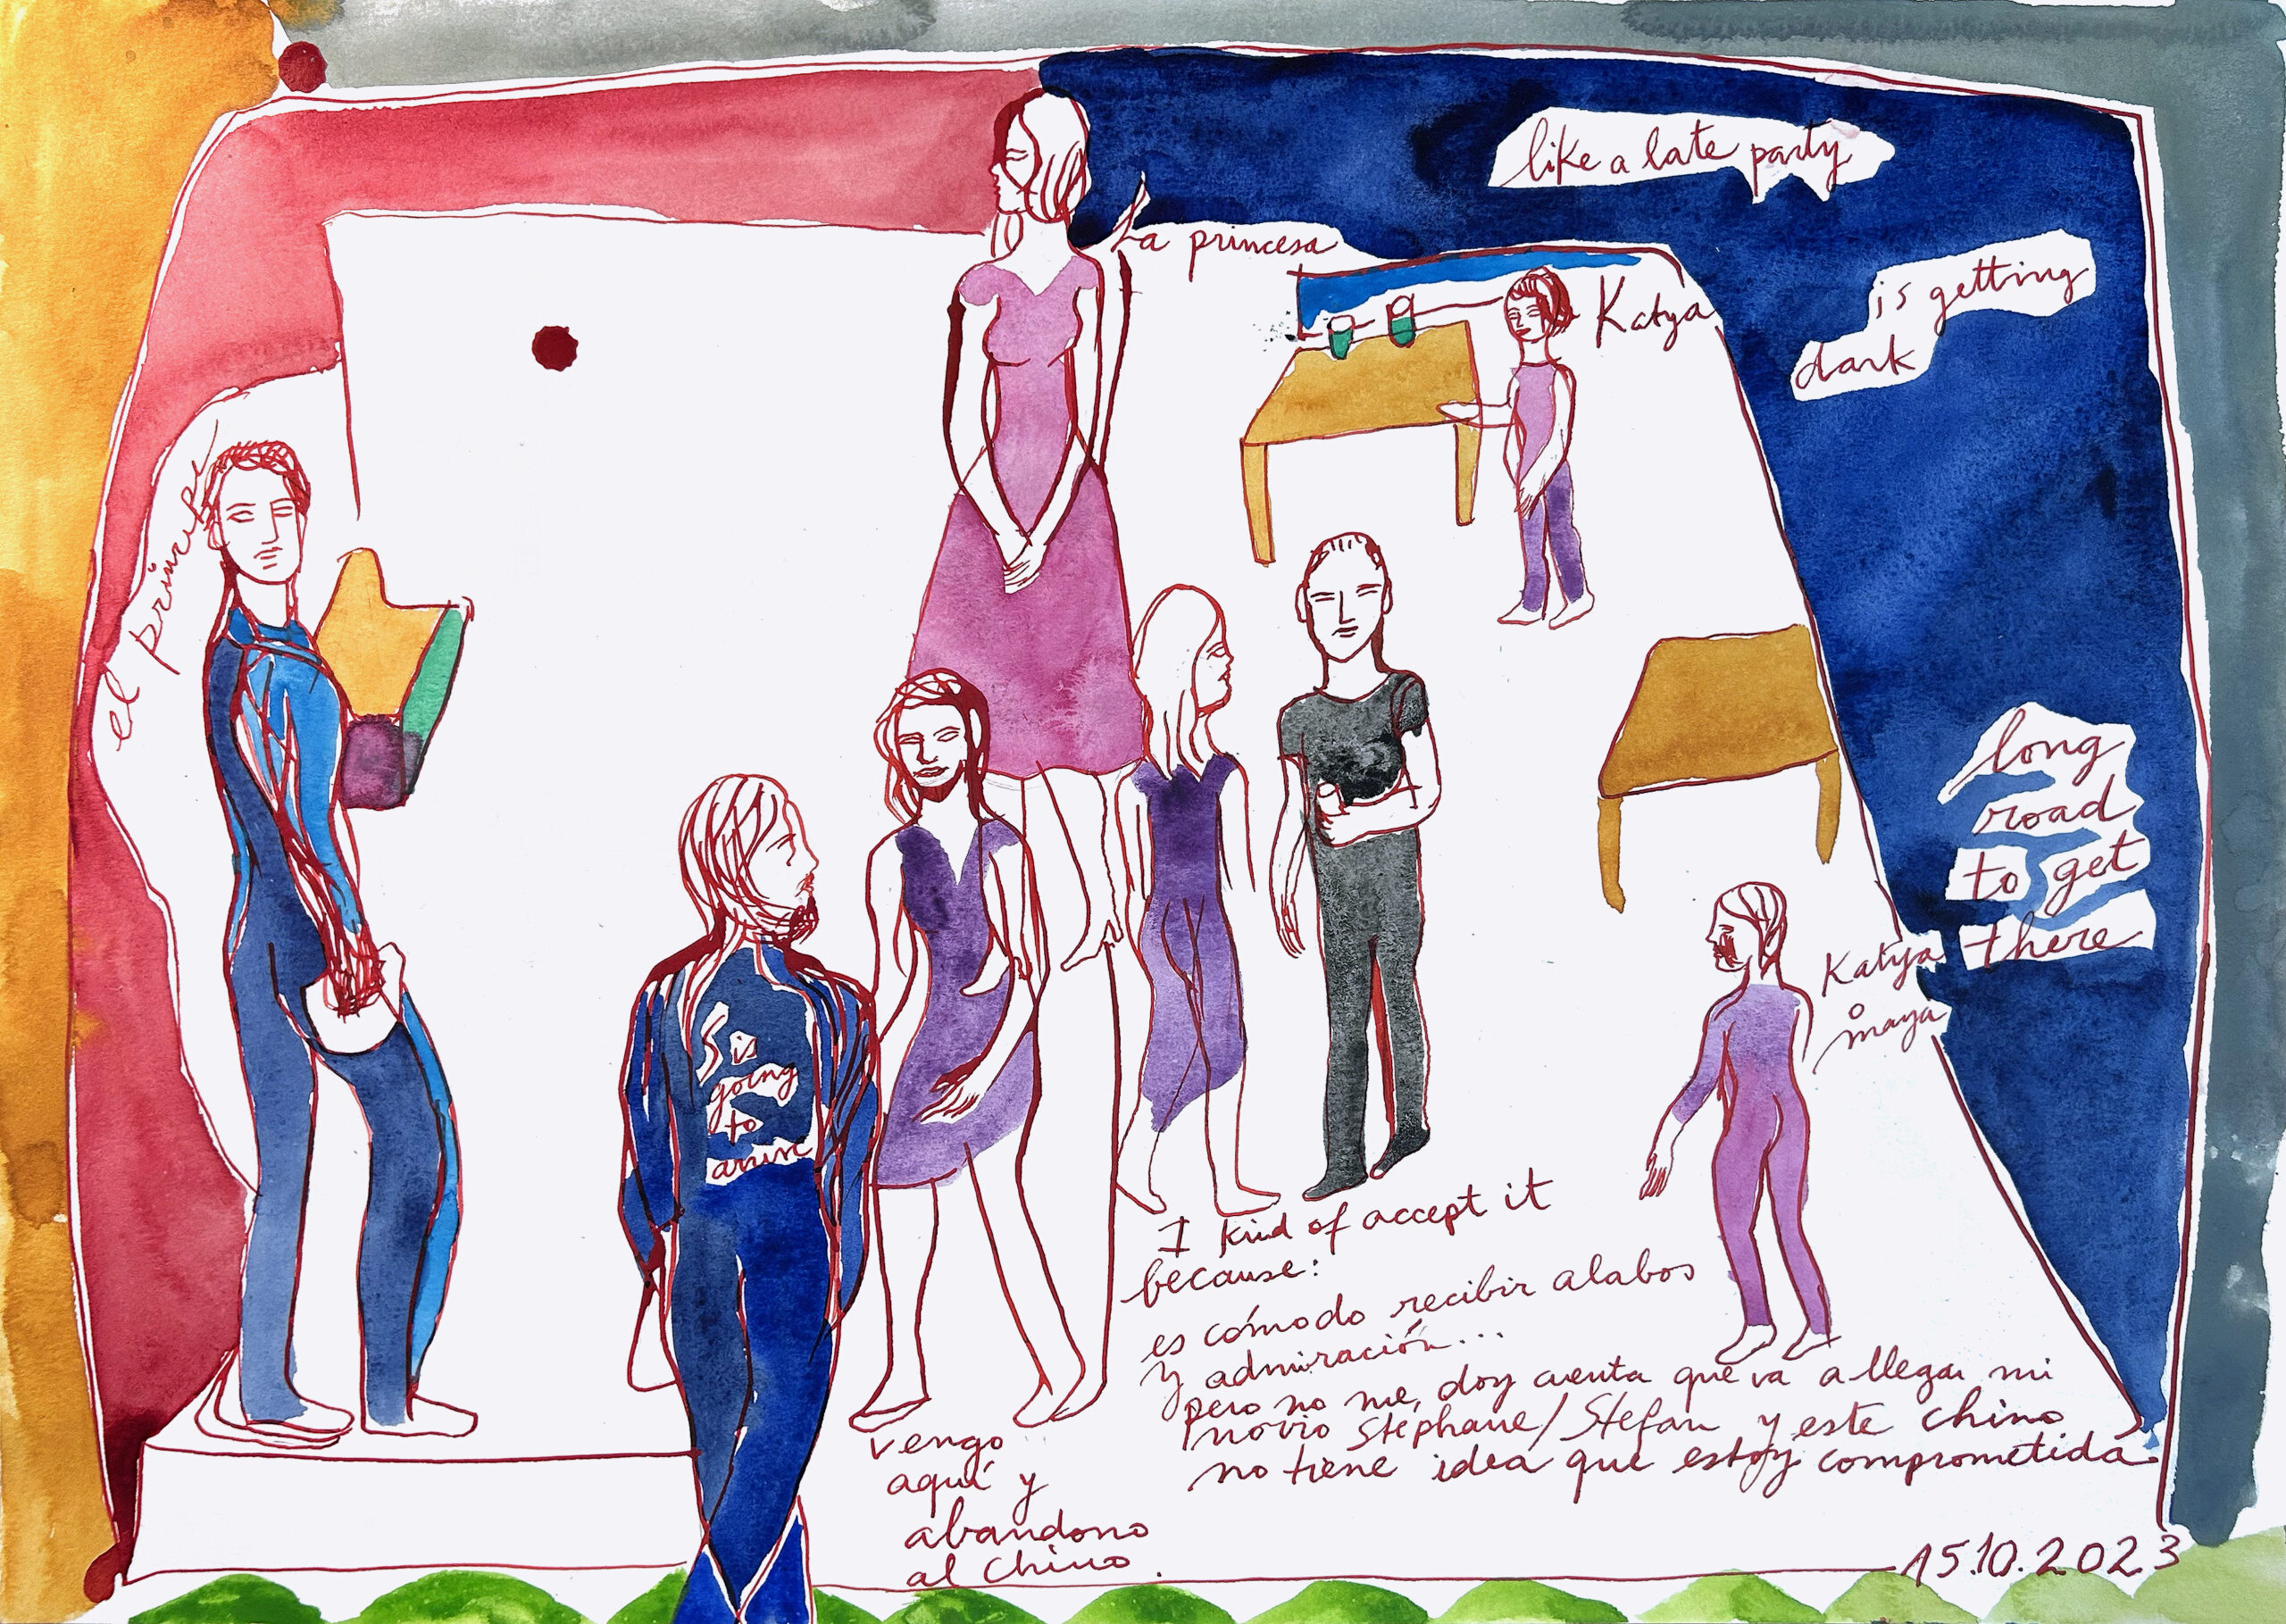 like a late party
La princesa
is getting
dark
Katya
el principe
long
road
to get
there
Katya
o
maya
S is
going
to
arrive
I kind of accept it
because:
es cómodo recibir alabos
y admiración...
pero no me, doy cuenta que va a llegar mi
novio Stephane/Stefan y este chino
no tiene idea que estoy comprometida.
vengo
aquí y
abandono
al chino.
15.10.2023